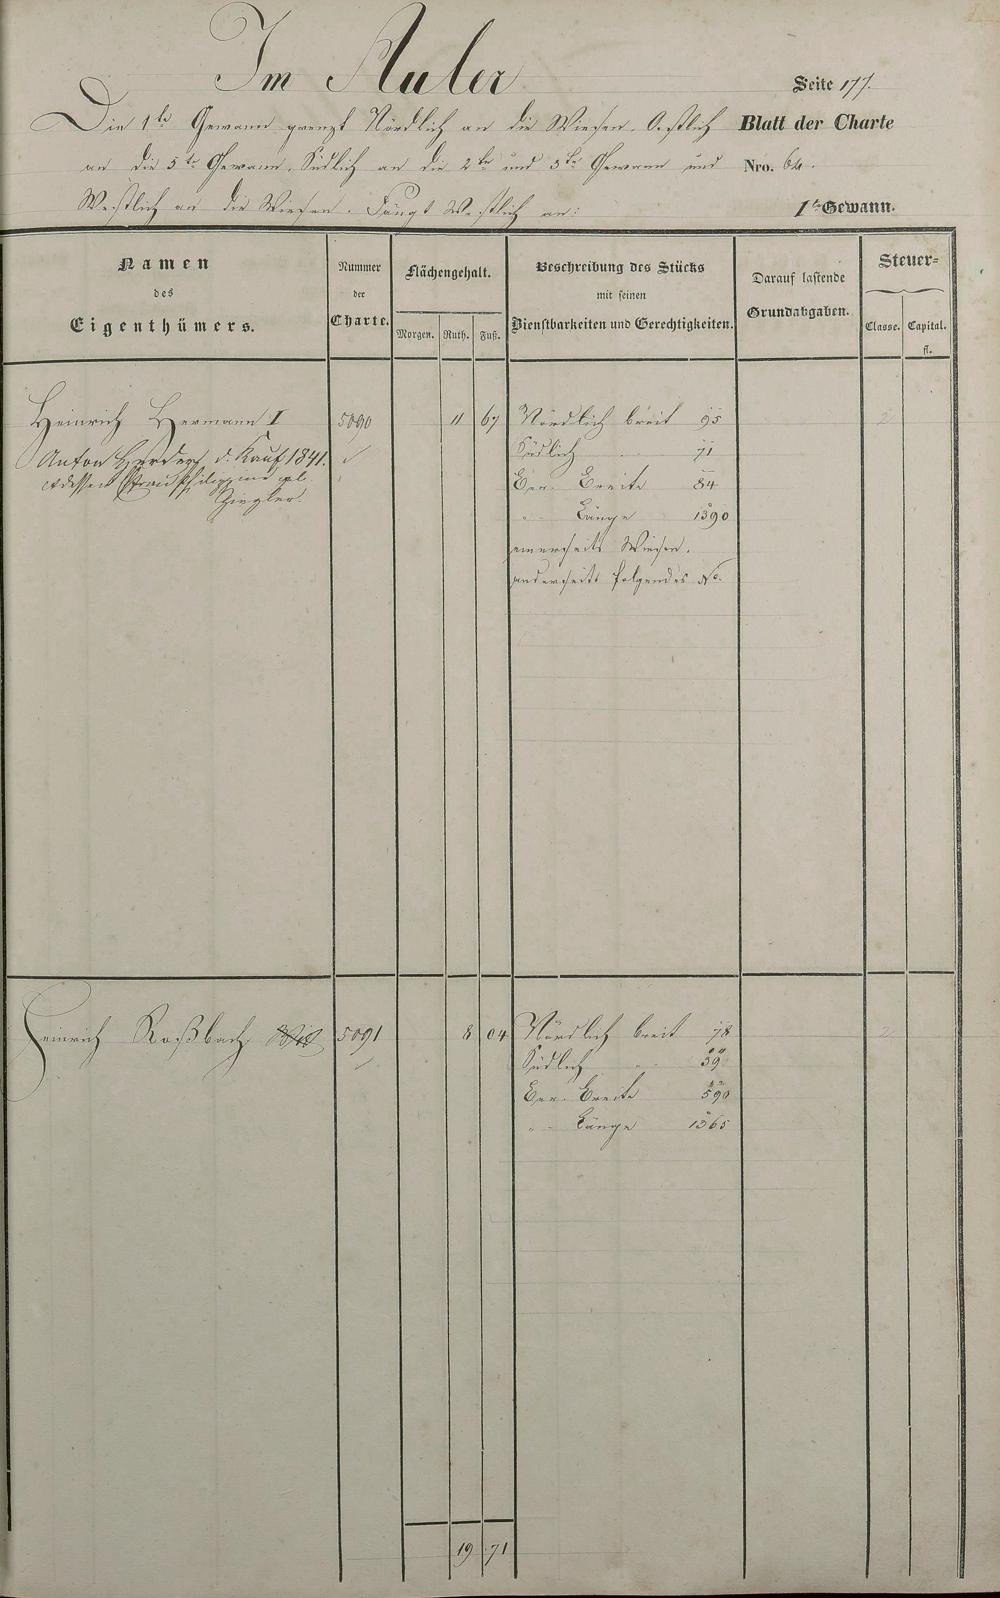 Im Auler
Seite 177.
Die 1te Gewann grenzt Nördlich an die Wiesen, Oestlich
Blatt der Charte
an die 5te Gewann, Südlich an die 2te und 3te Gewann und
Nro. 64.
Westlich an die Wiesen. Fängt Westlich an:
1te Gewann.
Namen
des
Eigenthümers.
Nummer
der
Charte.
Flächengehalt.
Morgen. Ruth. Fuß.
Beschreibung des Stücks
mit seinen
Dienstbarkeiten und Gerechtigkeiten.
Darauf lastende
Grundabgaben.
Steuer-
Classe. Capital.
fl.
Heinrich Hermann I 5090 11 67 Nördlich breit 95 2
Anton Herdert d. Kauf 1841. Südlich 71
et dessen Frau Philippine gb. Ber. Breite 84
Ziegler.
" Länge 1390
einerseits Wiesen.
anderseits folgendes No.
Heinrich Roßbach 5091 8 04 Nördlich breit 78 2
Südlich 39
Ber. Breite 590
" Länge 1365
19 71